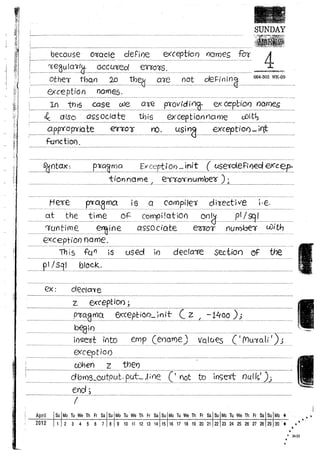 SUNDAY
4
064-302 WK-09
because oracle define exception names for
regularly occured errors.
other than 20 they are not defining
exception names.
In this case we are providing exception names
& also associate this exceptionname with
appropriate error no. using exception_init
function.
Syntax: pragma Exception_init (userdefined excep-
tionname, errornumber);
Here pragma is a compiler directive i.e.
at the time of compilation only pl/sql
runtime engine associate error number with
exception name.
This fun is used in declare section of the
pl/sql block.
ex: declare
z exception;
pragma exception_init (z, -1400);
begin
insert into emp (ename) values ('Murali');
exception
when z then
dbms_output.put_line ('not to insert nulls');
end;
/
April Su Mo Tu We Th Fr Sa Su Mo Tu We Th Fr Sa Su Mo Tu We Th Fr Sa Su Mo Tu We Th Fr Sa Su Mo
2012 1 2 3 4 5 6 7 8 9 10 11 12 13 14 15 16 17 18 19 20 21 22 23 24 25 26 27 28 29 30